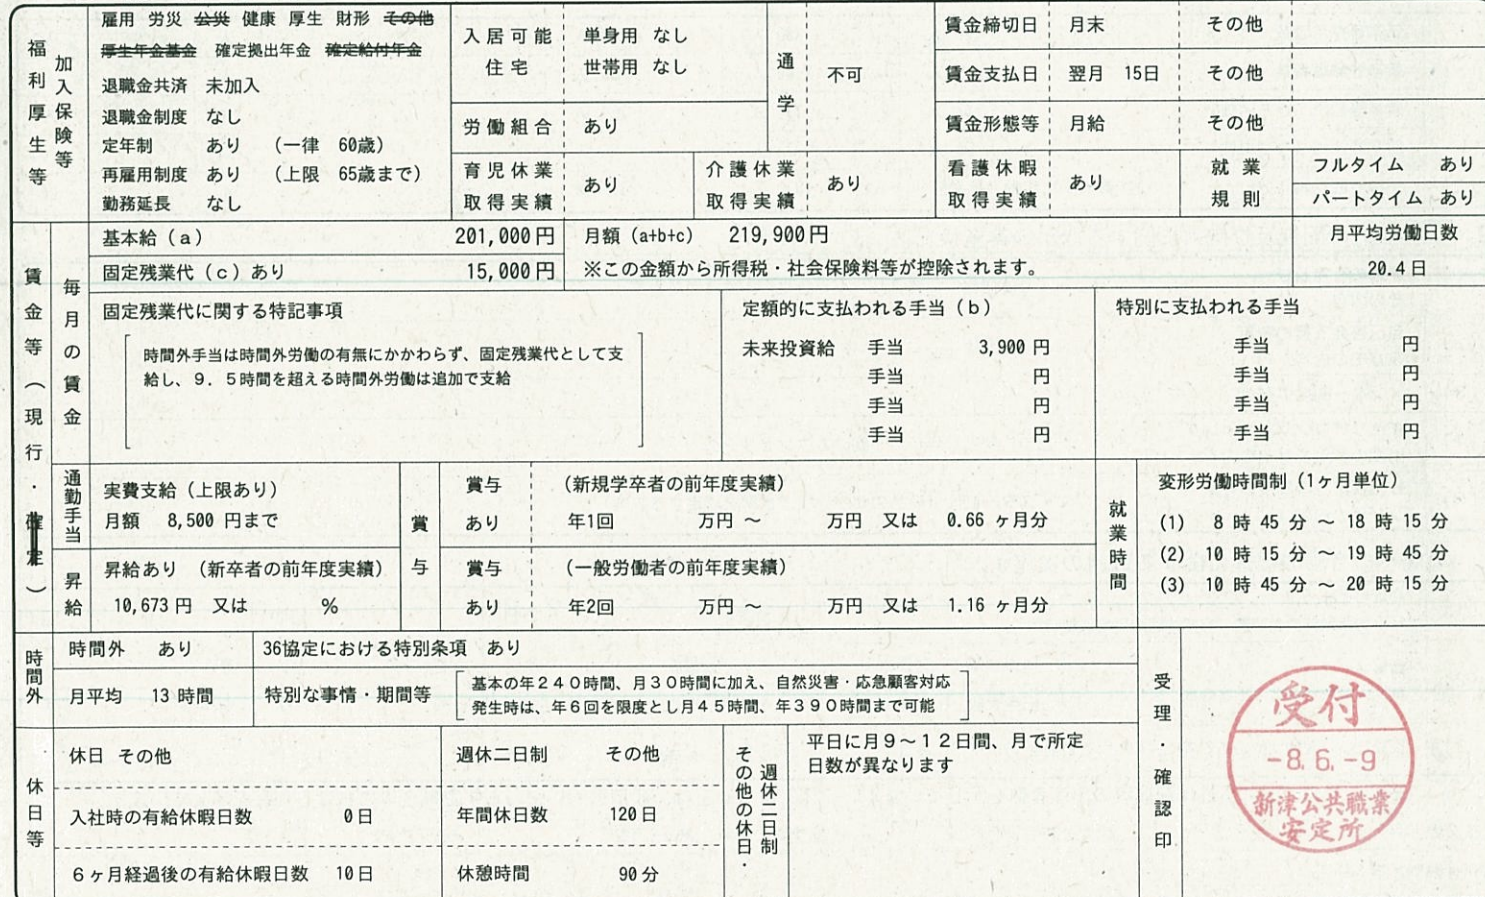 福利厚生等
加入保険等
雇用 労災 公災 健康 厚生 財形 その他
厚生年金基金 確定拠出年金 確定給付年金
退職金共済 未加入
退職金制度 なし
定年制 あり (一律 60歳)
再雇用制度 あり (上限 65歳まで)
勤務延長 なし
入居可能住宅
単身用 なし
世帯用 なし
労働組合 あり
育児休業取得実績 あり
通学 不可
介護休業取得実績 あり
賃金締切日 月末 その他
賃金支払日 翌月 15日 その他
賃金形態等 月給 その他
看護休暇取得実績 あり
就業規則
フルタイム あり
パートタイム あり
賃金等(現行・確定)
毎月の賃金
基本給(a) 201,000円
固定残業代(c)あり 15,000円
月額(a+b+c) 219,900円
※この金額から所得税・社会保険料等が控除されます。
月平均労働日数
20.4日
固定残業代に関する特記事項
時間外手当は時間外労働の有無にかかわらず、固定残業代として支
給し、9.5時間を超える時間外労働は追加で支給
定額的に支払われる手当(b)
未来投資給 手当 3,900 円
手当 円
手当 円
手当 円
特別に支払われる手当
手当 円
手当 円
手当 円
手当 円
通勤手当
実費支給(上限あり)
月額 8,500 円まで
昇給
昇給あり (新卒者の前年度実績)
10,673円 又は %
賞与
賞与 (新規学卒者の前年度実績)
あり 年1回 万円 ~ 万円 又は 0.66 ヶ月分
賞与 (一般労働者の前年度実績)
あり 年2回 万円 ~ 万円 又は 1.16 ヶ月分
就業時間
変形労働時間制(1ヶ月単位)
(1) 8 時 45 分 ~ 18 時 15 分
(2) 10 時 15 分 ~ 19 時 45 分
(3) 10 時 45 分 ~ 20 時 15 分
時間外
時間外 あり
月平均 13 時間
36協定における特別条項 あり
特別な事情・期間等
基本の年240時間、月30時間に加え、自然災害・応急顧客対応
発生時は、年6回を限度とし月45時間、年390時間まで可能
休日等
休日 その他
入社時の有給休暇日数 0日
6ヶ月経過後の有給休暇日数 10日
週休二日制 その他
年間休日数 120日
休憩時間 90分
週休二日制
その他の休日・
平日に月9~12日間、月で所定
日数が異なります
受理・確認印
受付
-8.6.-9
新津公共職業
安定所